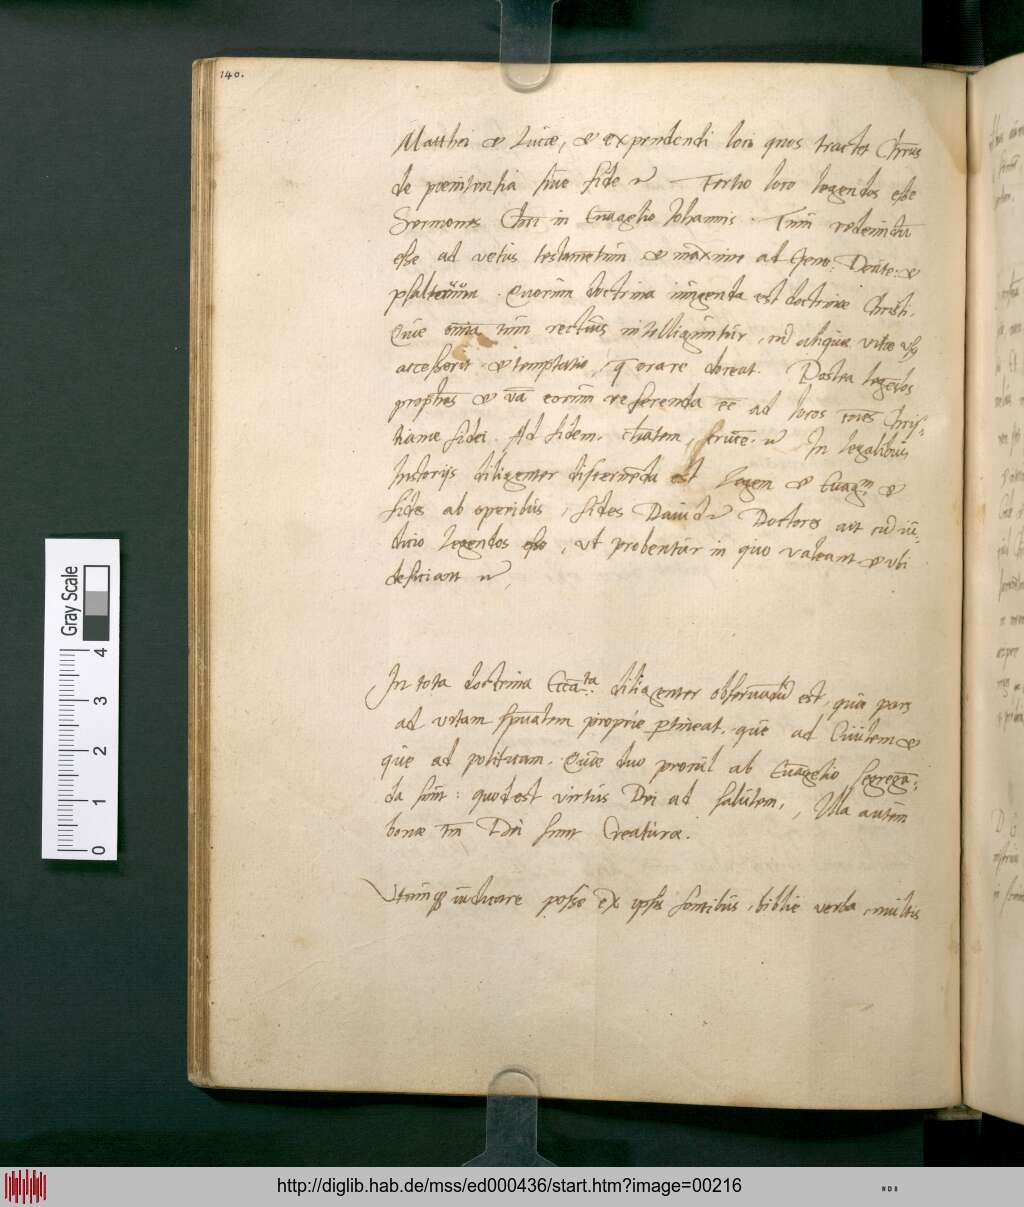 140.
Matthei et Lucae, et expendendi loci quos tractet Chrus
de poenitentia sive fide etc Tertio loco legendos esse
Sermones Chri in Euagelio Johannis. Tum redeundū
esse ad vetus testametum et maxime ad Gene: Deute: et
psalterium. Quorum doctrina iungenda est doctrinae Christi.
Quae omīa tum rectius intelligūntur, cū aliqua vitae usq
accesserit et temptatio, q orare doceat. Postea legēdos
prophetas et vā eorum referenda eē ad locos coīes Chris=
tianae fidei. Ad fidem. chatem, cruce. etc In legalibus
historijs diligenter discernēda est Legem et Euagm. et
fides ab operibus, fides Dauid etc Doctores aut cū iu=
dicio legendos esse, ut probentur in quo valeant et ubi
deficiant etc
In tota doctrina diligenter obseruadū est, quae pars
ad vitam spualem proprie ptineat. quae ad Ciuilem et
quae ad politicam. Quae duo procul ab Euagelio segregā=
da sunt: quod est virtus Dei ad salutem, Illa autem
bonae tm Dei sunt Creaturae.
Utrumq iudicare posse ex ipsis fontibus, biblie verba, multis
Gray Scale
4
3
2
1
0
http://diglib.hab.de/mss/ed000436/start.htm?image=00216